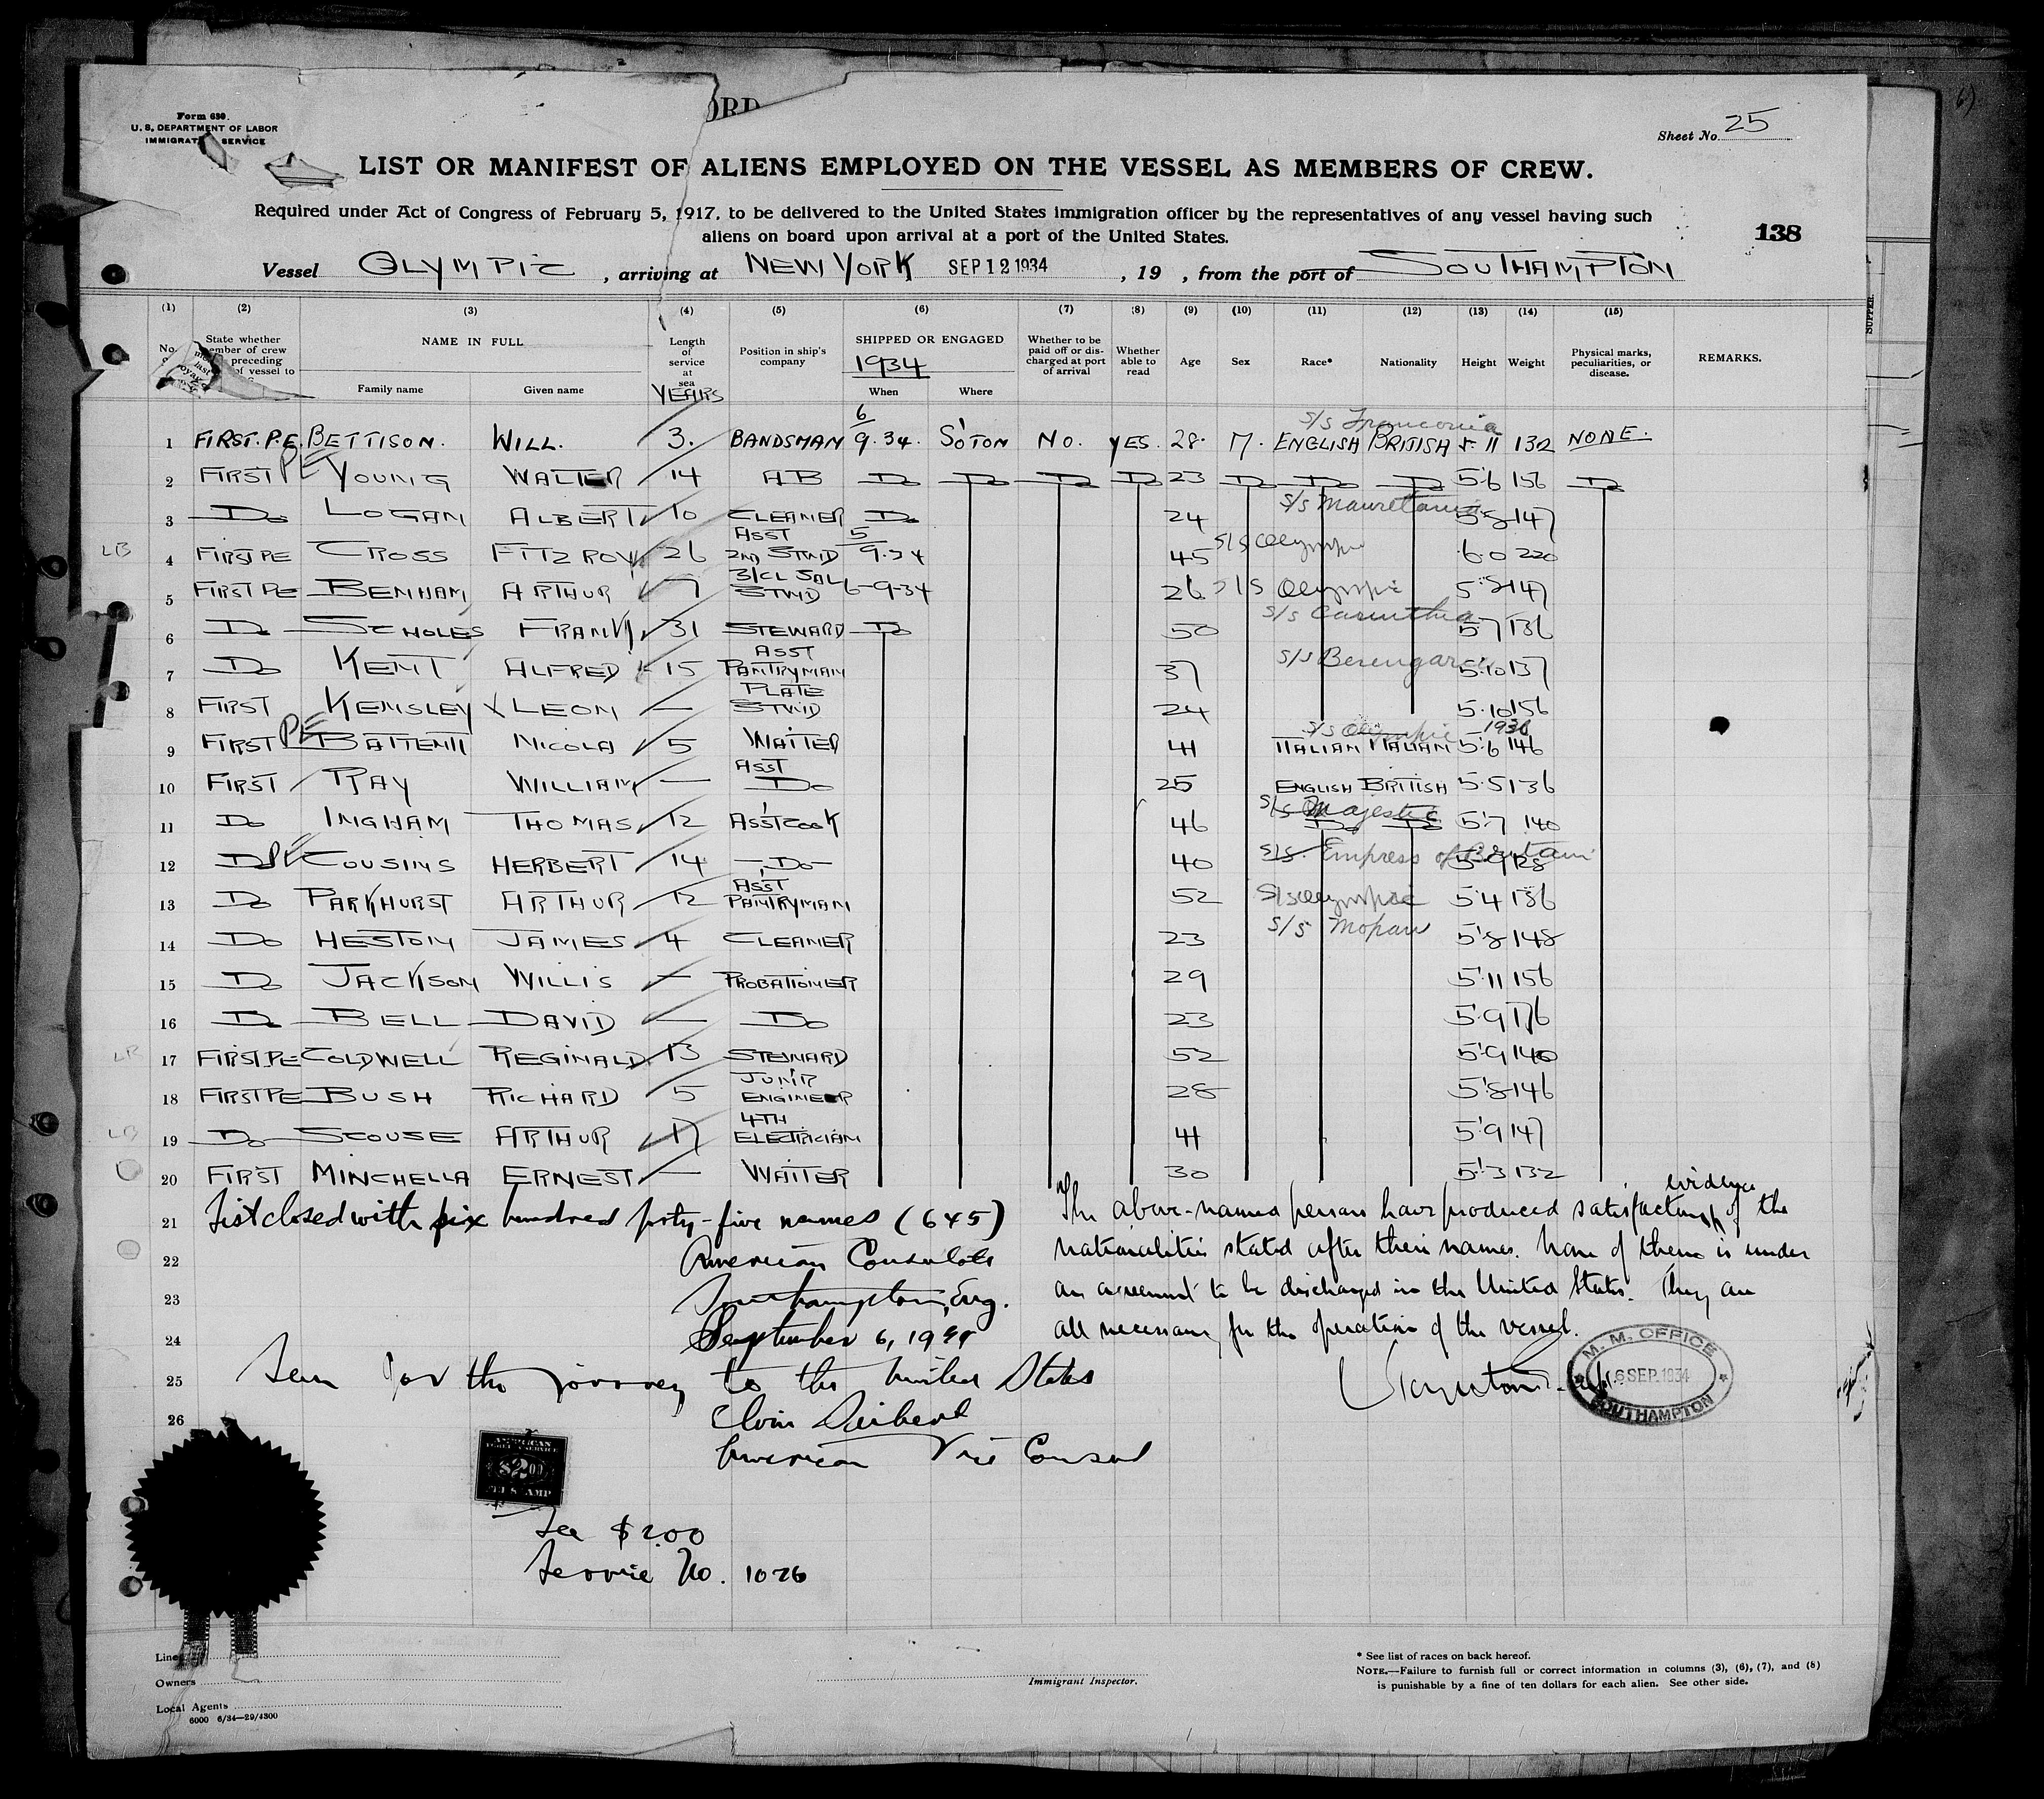 ORD
Form 630.
U. S. DEPARTMENT OF LABOR
IMMIGRAT SERVICE
Sheet No. 25
LIST OR MANIFEST OF ALIENS EMPLOYED ON THE VESSEL AS MEMBERS OF CREW.
Required under Act of Congress of February 5, 1917, to be delivered to the United States immigration officer by the representatives of any vessel having such
aliens on board upon arrival at a port of the United States.
138
Vessel OLYMPIC, arriving at NEW YORK SEP 12 1934, 19 , from the port of SOUTHAMPTON
(1) (2) (3) (4) (5) (6) (7) (8) (9) (10) (11) (12) (13) (14) (15)
No. State whether member of crew preceding of vessel to NAME IN FULL Family name Given name Length of service at sea YEARS Position in ship's company SHIPPED OR ENGAGED 1934 When Where Whether to be paid off or discharged at port of arrival Whether able to read Age Sex Race* Nationality Height Weight Physical marks, peculiarities, or disease. REMARKS.
s/s Franconia
1 FIRST. P.E. BETTISON. WILL. 3. BANDSMAN 6/9.34. S'OTON NO. YES. 28. M. ENGLISH BRITISH 5.11 132 NONE.
2 FIRST PE YOUNG WALTER 14 AB Do Do Do Do 23 Do Do Do 5.6 156 Do
s/s Mauretania
3 Do LOGAN ALBERT 10 CLEANER Do 24 5.8 147
4 FIRST PE CROSS FITZROY 26 ASST 2ND STWD 5/9.34 45 s/s Olympic 6.0 220
5 FIRST PE BENHAM ARTHUR 7 3/CL SAL STWD 6-9-34 26 s/s Olympic 5.8 147
s/s Carinthia
6 Do SCHOLES FRANK 31 STEWARD Do 50 5.7 136
7 Do KENT ALFRED 15 ASST PANTRYMAN 37 s/s Berengaria 5.10 137
8 FIRST KEMSLEY LEON — PLATE STWD 24 5.10 156
s/s Olympic 1936
9 FIRST PE BATTENTI NICOLA 5 WAITER 41 ITALIAN ITALIAN 5.6 146
10 FIRST RAY WILLIAM — ASST Do 25 ENGLISH BRITISH 5.5 136
s/s Majestic
11 Do INGHAM THOMAS 12 ASST COOK 46 Do Do 5.7 140
12 Do PE COUSINS HERBERT 14 -Do- 40 s/s. Empress of Britain 5.9 128
13 Do PARKHURST ARTHUR 12 ASST PANTRYMAN 52 s/s Olympic 5.4 136
s/s Mopan
14 Do HESTON JAMES 4 CLEANER 23 5.8 148
15 Do JACKSON WILLIS — PROBATIONER 29 5.11 156
16 Do BELL DAVID — Do 23 5.9 176
17 FIRST PE COLDWELL REGINALD 13 STEWARD 52 5.9 140
18 FIRST PE BUSH RICHARD 5 JUNR ENGINEER 28 5.8 146
19 Do SCOUSE ARTHUR 17 4TH ELECTRICIAN 41 5.9 147
20 FIRST MINCHELLA ERNEST — WAITER 30 5.3 132
21 List closed with six hundred forty-five names (645)
22 American Consulate
23 Southampton, Eng.
24 September 6, 1934
25 Seen for the journey to the United States
26 Elvin Seibert
American Vice Consul
The above-named persons have produced satisfactory evidence of the
nationalities stated after their names. None of them is under
an agreement to be discharged in the United States. They are
all necessary for the operation of the vessel.
M. M. OFFICE
6 SEP. 1934
SOUTHAMPTON
AMERICAN
$2.00
FEE STAMP
Fee $2.00
Service No. 1026
Lines
Owners
Local Agents
6000 6/34—29/4300
Immigrant Inspector.
* See list of races on back hereof.
NOTE.—Failure to furnish full or correct information in columns (3), (6), (7), and (8)
is punishable by a fine of ten dollars for each alien. See other side.